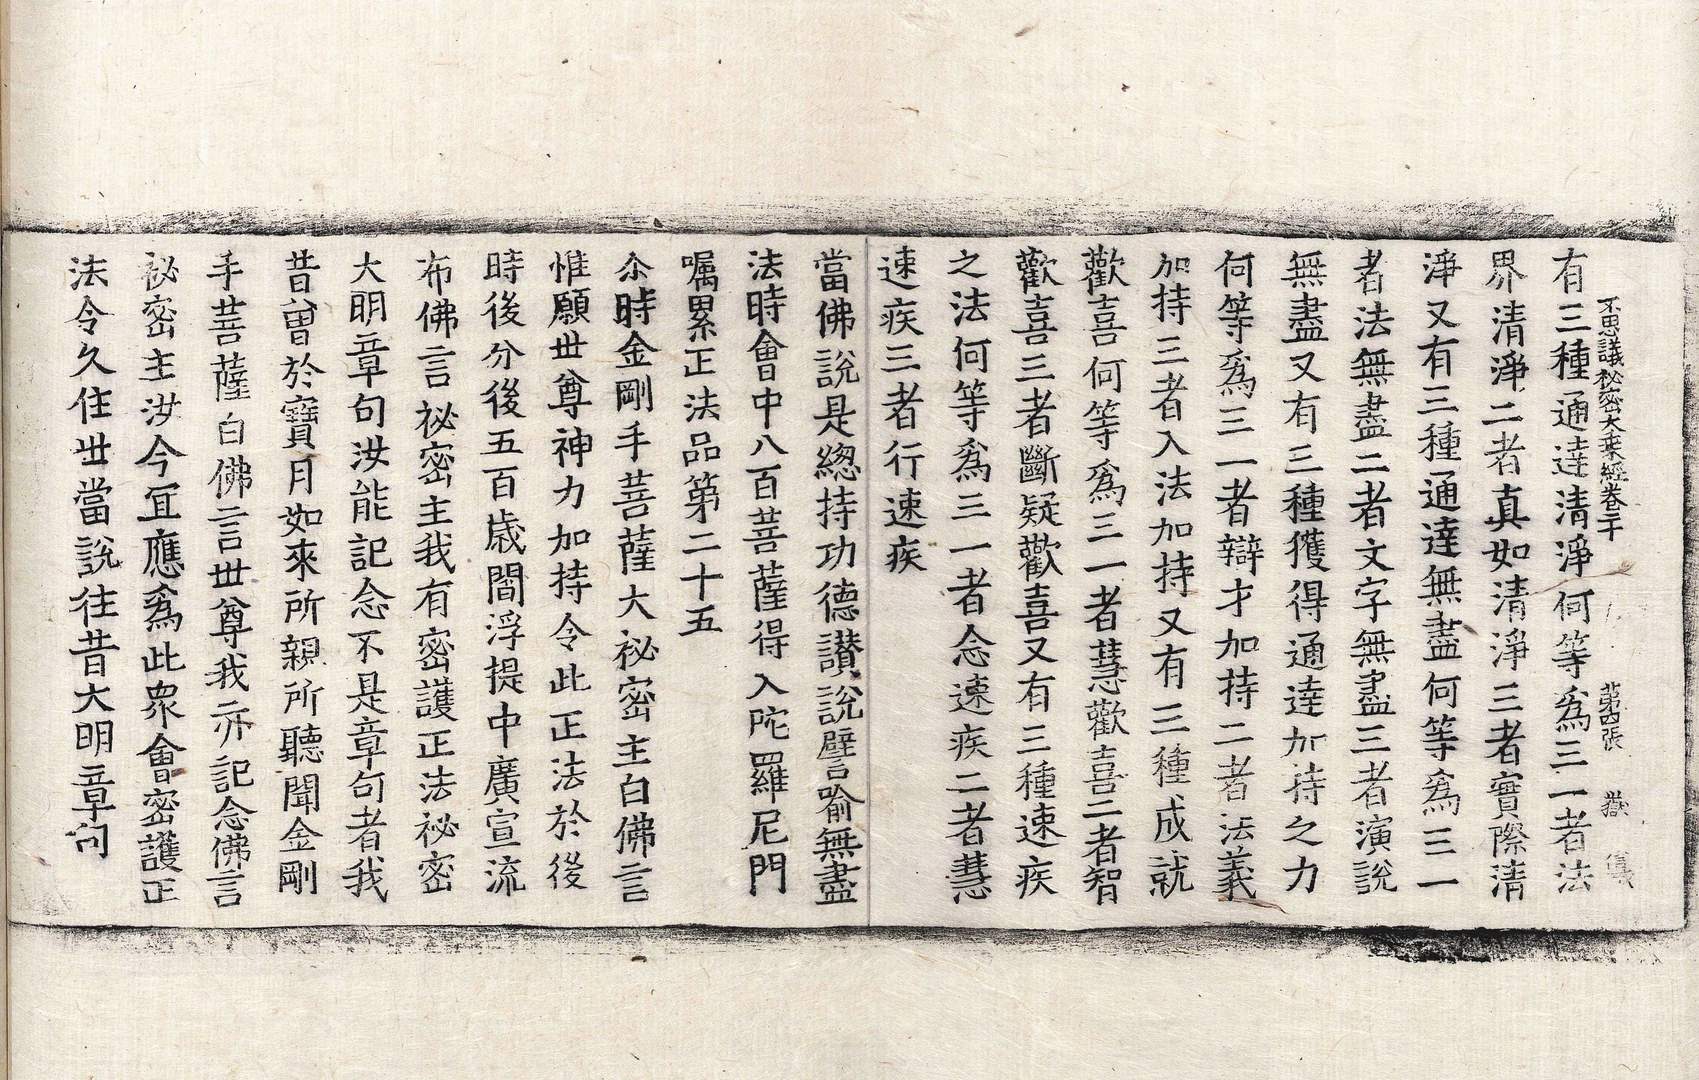 不思議秘密大乘經卷二十 第四張 嶽
有三種通達清淨何等爲三一者法
界清淨二者真如清淨三者實際清
淨又有三種通達無盡何等爲三一
者法無盡二者文字無盡三者演說
無盡又有三種獲得通達加持之力
何等爲三一者辯才加持二者法義
加持三者入法加持又有三種成就
歡喜何等爲三一者慧歡喜二者智
歡喜三者斷疑歡喜又有三種速疾
之法何等爲三一者念速疾二者慧
速疾三者行速疾
當佛說是總持功德讃說譬喻無盡
法時會中八百菩薩得入陀羅尼門
囑累正法品第二十五
尒時金剛手菩薩大祕密主白佛言
惟願世尊神力加持令此正法於後
時後分後五百歲閻浮提中廣宣流
布佛言祕密主我有密護正法祕密
大明章句汝能記念不是章句者我
昔曾於寶月如來所親所聽聞金剛
手菩薩白佛言世尊我亦記念佛言
祕密主汝今宜應爲此衆會密護正
法令久住世當說往昔大明章句